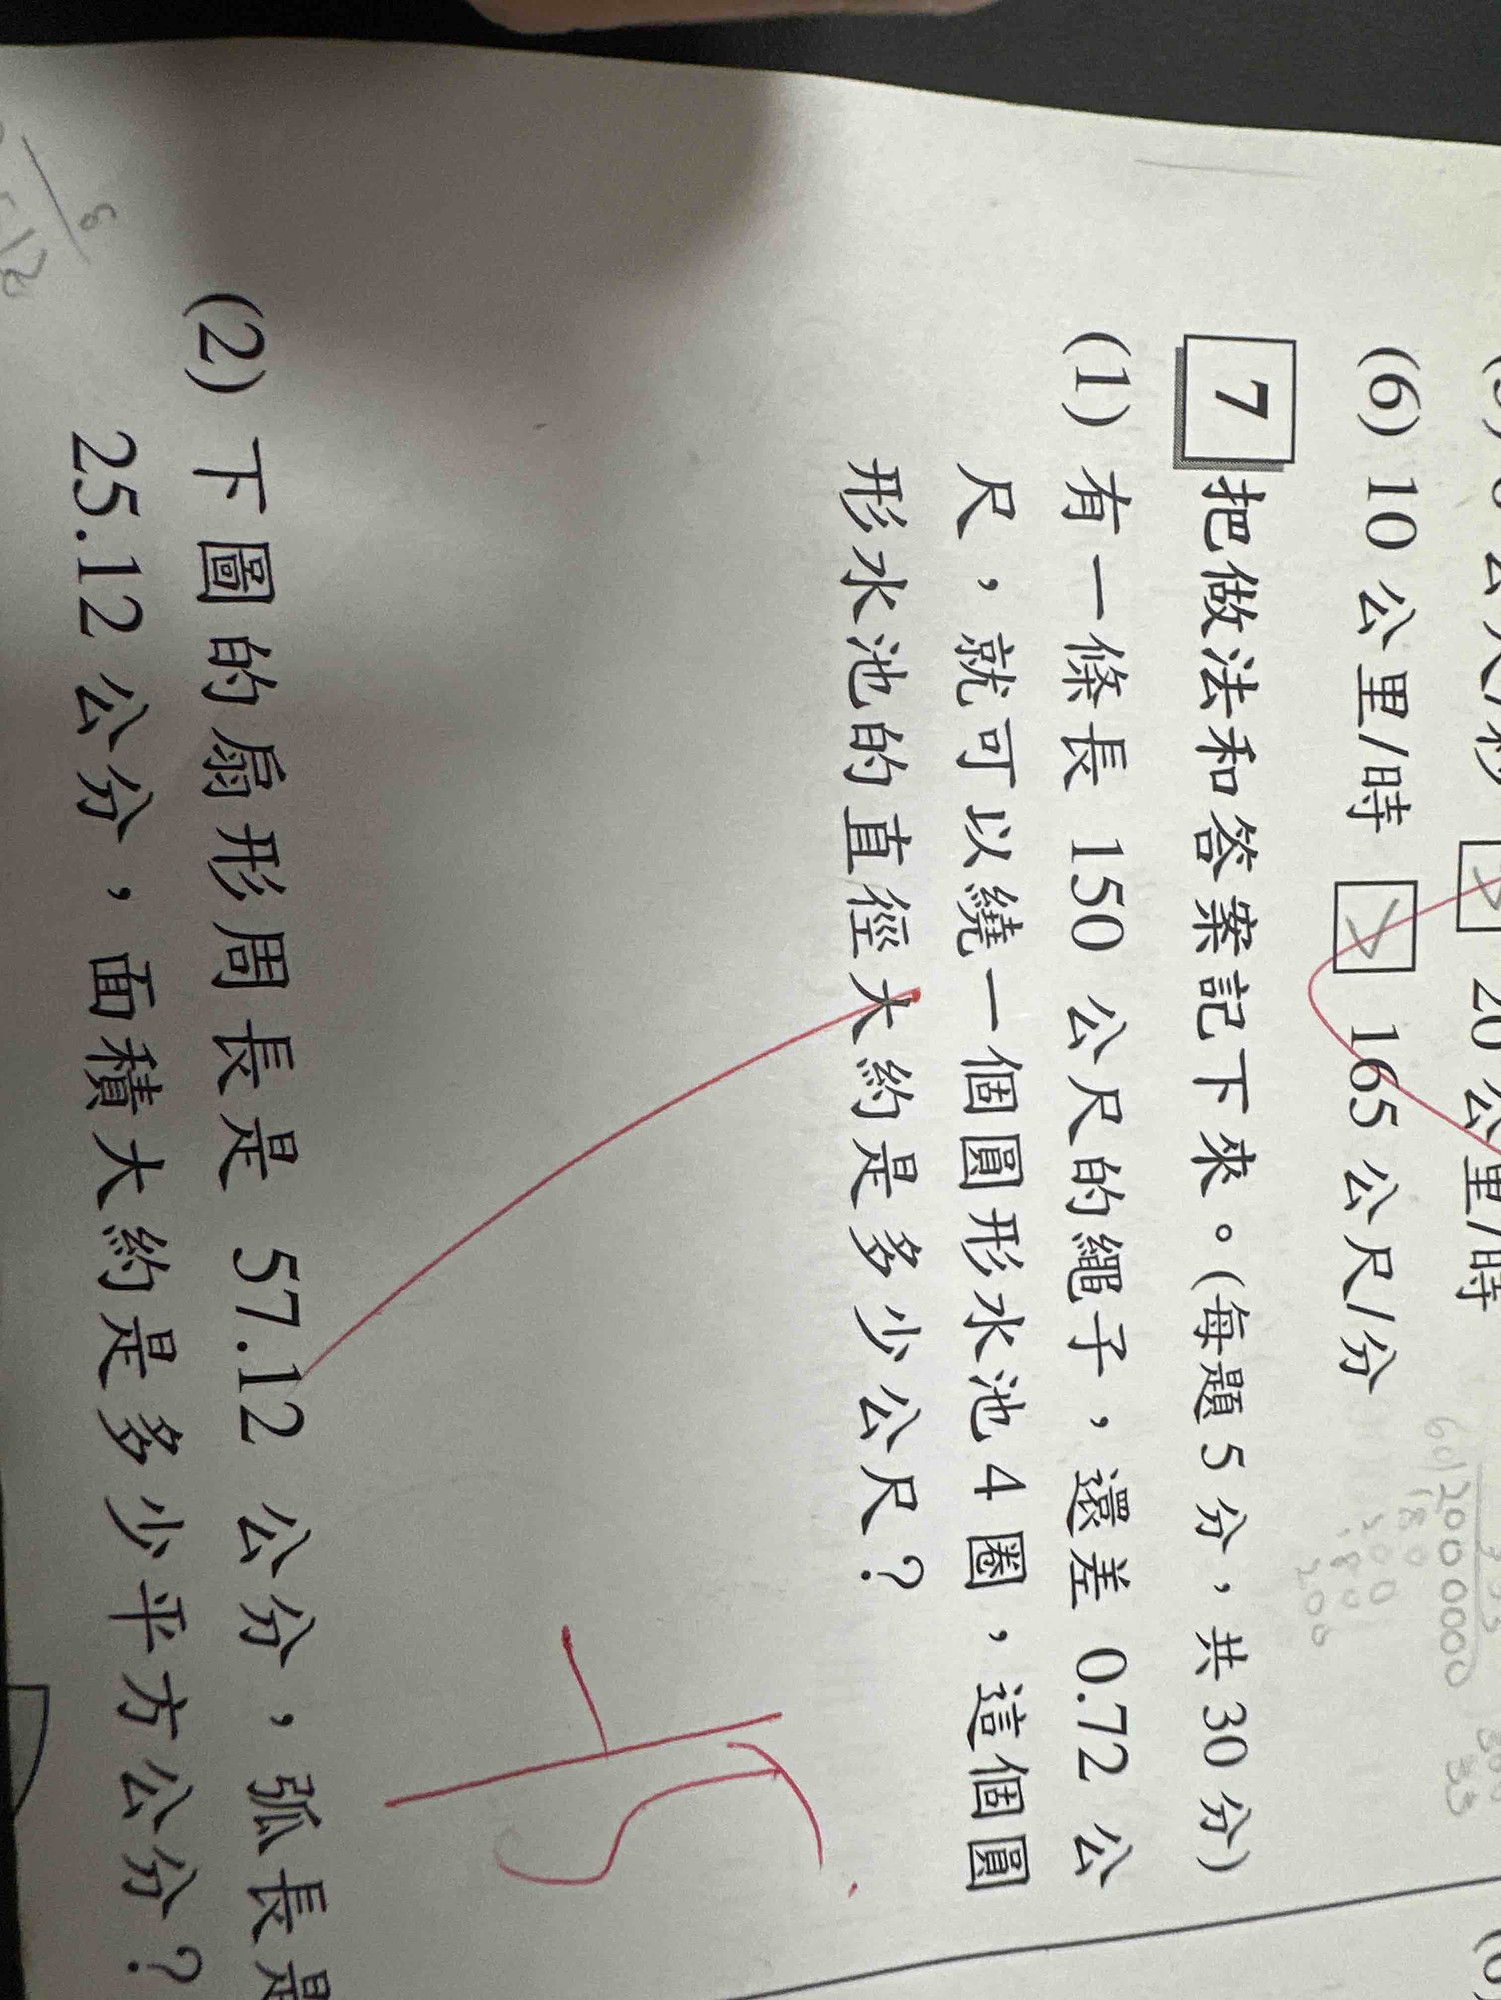 20 公里/時
(6) 10 公里/時 > 165 公尺/分
7 把做法和答案記下來。(每題 5 分，共 30 分)
(1) 有一條長 150 公尺的繩子，還差 0.72 公
尺，就可以繞一個圓形水池 4 圈，這個圓
形水池的直徑大約是多少公尺？
(2) 下圖的扇形周長是 57.12 公分，弧長是
25.12 公分，面積大約是多少平方公分？